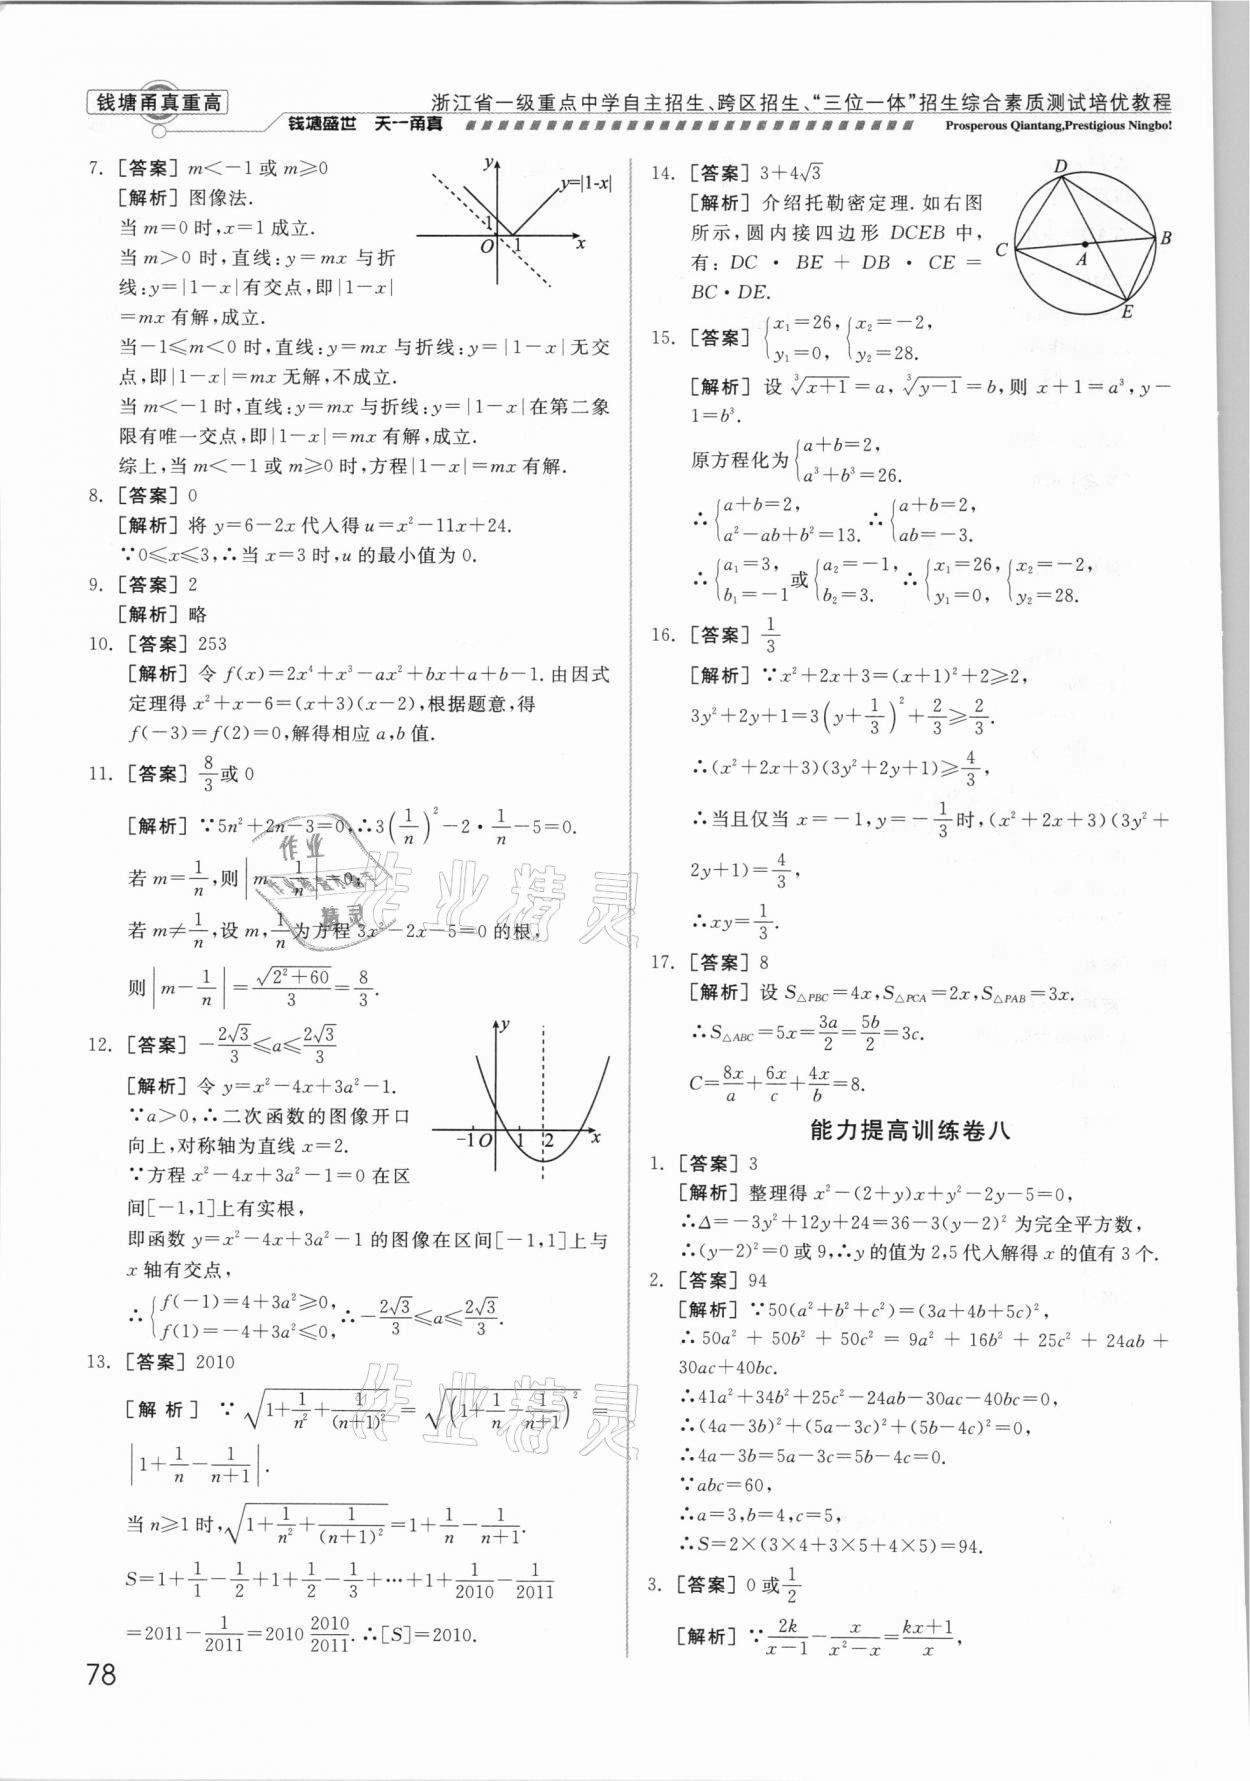 钱塘甬真重高
浙江省一级重点中学自主招生、跨区招生、“三位一体”招生综合素质测试培优教程
钱塘盛世 天一甬真
Prosperous Qiantang,Prestigious Ningbo!
7. [答案] m<-1或m≥0
[解析] 图像法.
当m=0时,x=1成立.
当m>0时,直线:y=mx与折
线:y=|1-x|有交点,即|1-x|
=mx有解,成立.
当-1≤m<0时,直线:y=mx与折线:y=|1-x|无交
点,即|1-x|=mx无解,不成立.
当m<-1时,直线:y=mx与折线:y=|1-x|在第二象
限有唯一交点,即|1-x|=mx有解,成立.
综上,当m<-1或m≥0时,方程|1-x|=mx有解.
y
y=|1-x|
1
O 1 x
8. [答案] 0
[解析] 将y=6-2x代入得u=x²-11x+24.
∵0≤x≤3,∴当x=3时,u的最小值为0.
9. [答案] 2
[解析] 略
10. [答案] 253
[解析] 令f(x)=2x⁴+x³-ax²+bx+a+b-1.由因式
定理得x²+x-6=(x+3)(x-2),根据题意,得
f(-3)=f(2)=0,解得相应a,b值.
11. [答案] 8/3或0
[解析] ∵5n²+2n-3=0,∴3(1/n)²-2·1/n-5=0.
若m=1/n,则|m-1/n|=0;
若m≠1/n,设m,1/n为方程3x²-2x-5=0的根,
则|m-1/n|=√(2²+60)/3=8/3.
12. [答案] -2√3/3≤a≤2√3/3
[解析] 令y=x²-4x+3a²-1.
∵a>0,∴二次函数的图像开口
向上,对称轴为直线x=2.
∵方程x²-4x+3a²-1=0在区
间[-1,1]上有实根,
即函数y=x²-4x+3a²-1的图像在区间[-1,1]上与
x轴有交点,
∴{f(-1)=4+3a²≥0, f(1)=-4+3a²≤0, ∴-2√3/3≤a≤2√3/3.
y
-1 O 1 2 x
13. [答案] 2010
[解析] ∵√(1+1/n²+1/(n+1)²)=√(1+1/n-1/(n+1))²=
|1+1/n-1/(n+1)|.
当n≥1时,√(1+1/n²+1/(n+1)²)=1+1/n-1/(n+1).
S=1+1/1-1/2+1+1/2-1/3+…+1+1/2010-1/2011
=2011-1/2011=2010 2010/2011.∴[S]=2010.
78
14. [答案] 3+4√3
[解析] 介绍托勒密定理.如右图
所示,圆内接四边形DCEB中,
有:DC·BE+DB·CE=
BC·DE.
D
C
A
B
E
15. [答案] {x₁=26, y₁=0, {x₂=-2, y₂=28.
[解析] 设∛(x+1)=a,∛(y-1)=b,则x+1=a³,y-
1=b³.
原方程化为{a+b=2, a³+b³=26.
∴{a+b=2, a²-ab+b²=13. ∴{a+b=2, ab=-3.
∴{a₁=3, b₁=-1 或{a₂=-1, b₂=3. ∴{x₁=26, y₁=0, {x₂=-2, y₂=28.
16. [答案] 1/3
[解析] ∵x²+2x+3=(x+1)²+2≥2,
3y²+2y+1=3(y+1/3)²+2/3≥2/3.
∴(x²+2x+3)(3y²+2y+1)≥4/3,
∴当且仅当x=-1,y=-1/3时,(x²+2x+3)(3y²+
2y+1)=4/3,
∴xy=1/3.
17. [答案] 8
[解析] 设S△PBC=4x,S△PCA=2x,S△PAB=3x.
∴S△ABC=5x=3a/2=5b/2=3c.
C=8x/a+6x/c+4x/b=8.
能力提高训练卷八
1. [答案] 3
[解析] 整理得x²-(2+y)x+y²-2y-5=0,
∴Δ=-3y²+12y+24=36-3(y-2)²为完全平方数,
∴(y-2)²=0或9,∴y的值为2,5代入解得x的值有3个.
2. [答案] 94
[解析] ∵50(a²+b²+c²)=(3a+4b+5c)²,
∴50a²+50b²+50c²=9a²+16b²+25c²+24ab+
30ac+40bc.
∴41a²+34b²+25c²-24ab-30ac-40bc=0,
∴(4a-3b)²+(5a-3c)²+(5b-4c)²=0,
∴4a-3b=5a-3c=5b-4c=0.
∵abc=60,
∴a=3,b=4,c=5,
∴S=2×(3×4+3×5+4×5)=94.
3. [答案] 0或1/2
[解析] ∵2k/(x-1)-x/(x²-x)=(kx+1)/x,
作业精灵
作业精灵